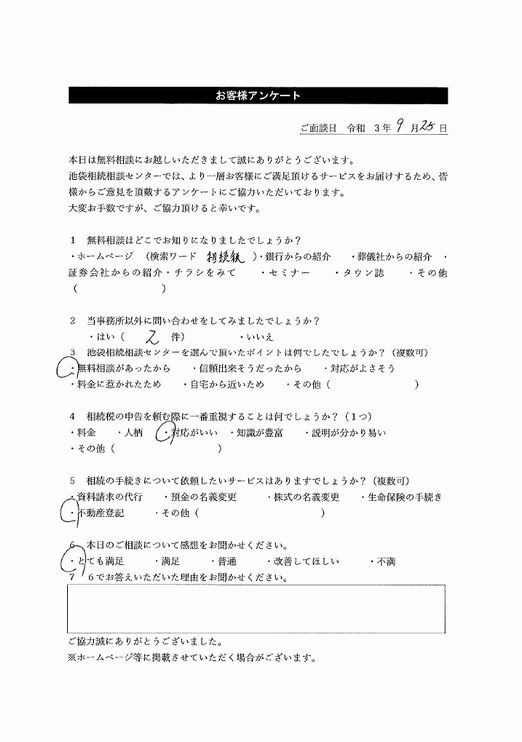 お客様アンケート
ご面談日　令和　3年 9 月 25 日
本日は無料相談にお越しいただきまして誠にありがとうございます。
池袋相続相談センターでは、より一層お客様にご満足頂けるサービスをお届けするため、皆
様からご意見を頂戴するアンケートにご協力いただいております。
大変お手数ですが、ご協力頂けると幸いです。
1　無料相談はどこでお知りになりましたでしょうか？
・ホームページ　（検索ワード　相続税　）・銀行からの紹介　・葬儀社からの紹介　・
証券会社からの紹介・チラシをみて　・セミナー　・タウン誌　・その他
（　　　　　　　　　）
2　当事務所以外に問い合わせをしてみましたでしょうか？
・はい（　2　件）　・いいえ
3　池袋相続相談センターを選んで頂いたポイントは何でしたでしょうか？（複数可）
・無料相談があったから　・信頼出来そうだったから　・対応がよさそう
・料金に惹かれたため　・自宅から近いため　・その他（　　　　　　　　　）
4　相続税の申告を頼む際に一番重視することは何でしょうか？（1つ）
・料金　・人柄　・対応がいい　・知識が豊富　・説明が分かり易い
・その他（　　　　　　　　　　　）
5　相続の手続きについて依頼したいサービスはありますでしょうか？（複数可）
・資料請求の代行　・預金の名義変更　・株式の名義変更　・生命保険の手続き
・不動産登記　・その他（　　　　　　　　　　　　　）
6　本日のご相談について感想をお聞かせください。
・とても満足　・満足　・普通　・改善してほしい　・不満
7　6でお答えいただいた理由をお聞かせください。
ご協力誠にありがとうございました。
※ホームページ等に掲載させていただく場合がございます。